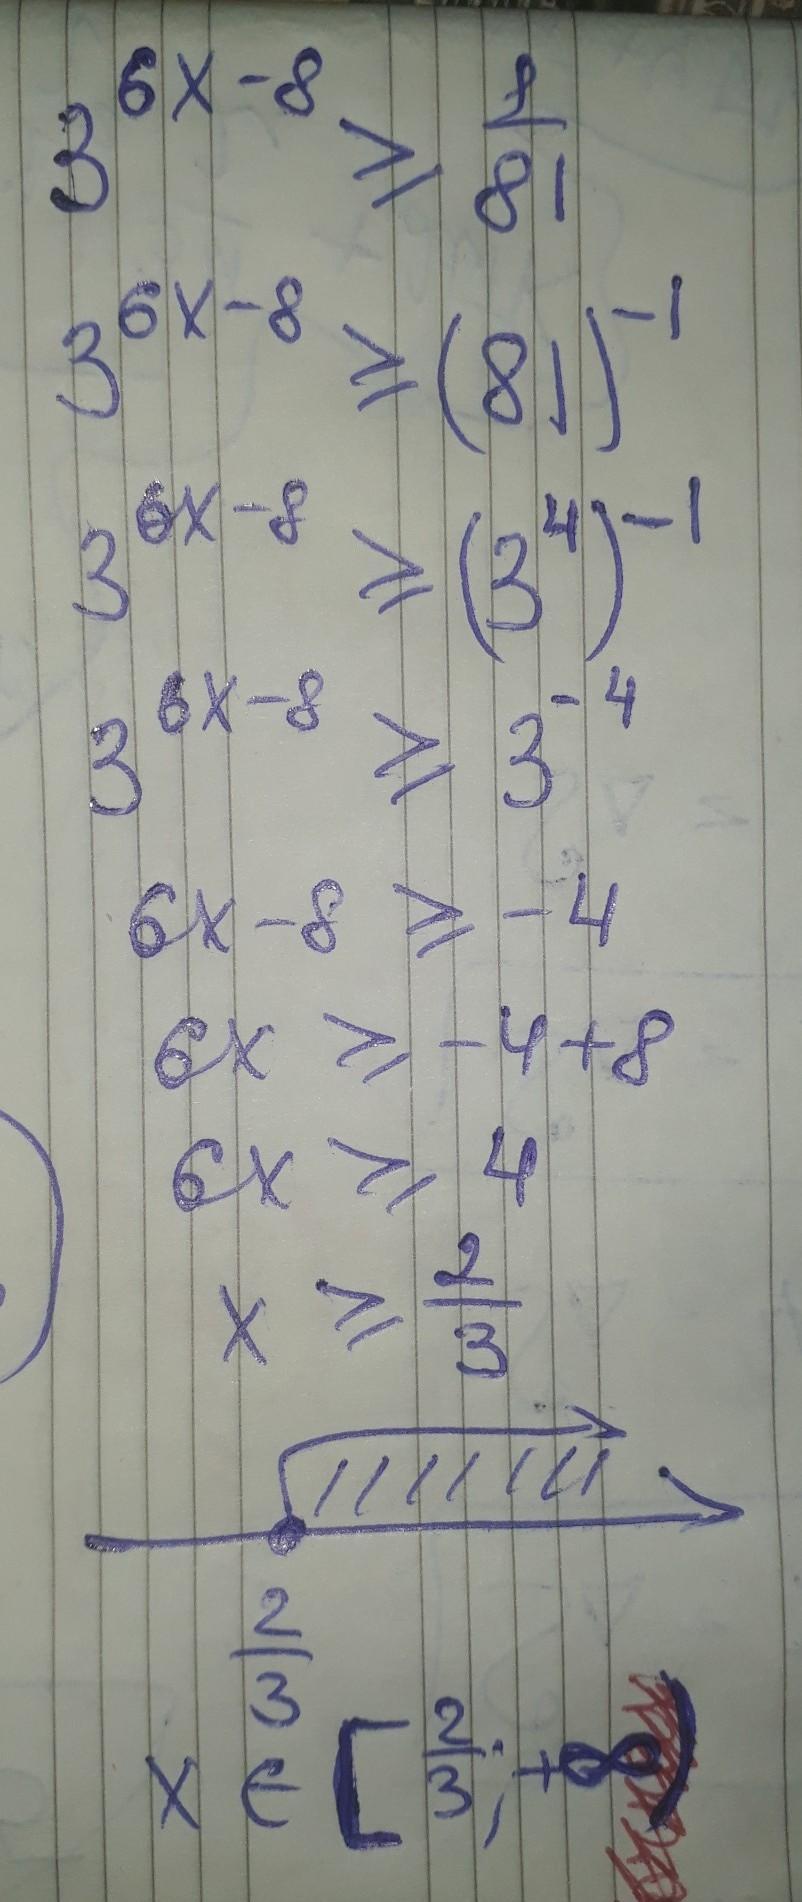 3^{6x-8} ≥ \frac{1}{81}
3^{6x-8} ≥ (81)^{-1}
3^{6x-8} ≥ (3^4)^{-1}
3^{6x-8} ≥ 3^{-4}
6x-8 ≥ -4
6x ≥ -4+8
6x ≥ 4
x ≥ \frac{2}{3}
\frac{2}{3}
x ∈ [\frac{2}{3}; +∞)